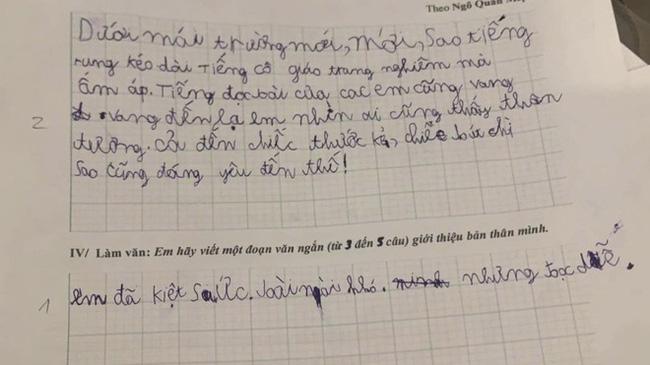 Theo Ngô Quân
Dưới mái trường mới, mới, sao tiếng
rung kéo dài Tiếng cô giáo trang nghiêm mà
ấm áp. Tiếng đọc bài của cac em cũng vang
vang đến lạ em nhìn ai cũng thấy thân
tương. Cả đến chiếc thước kẻ, chiếc bút chì
sao cũng đáng yêu đến thế!
2
IV/ Làm văn: Em hãy viết một đoạn văn ngắn (từ 3 đến 5 câu) giới thiệu bản thân mình.
1
em đã kiệt sức. bài này khó. những đọc dễ.